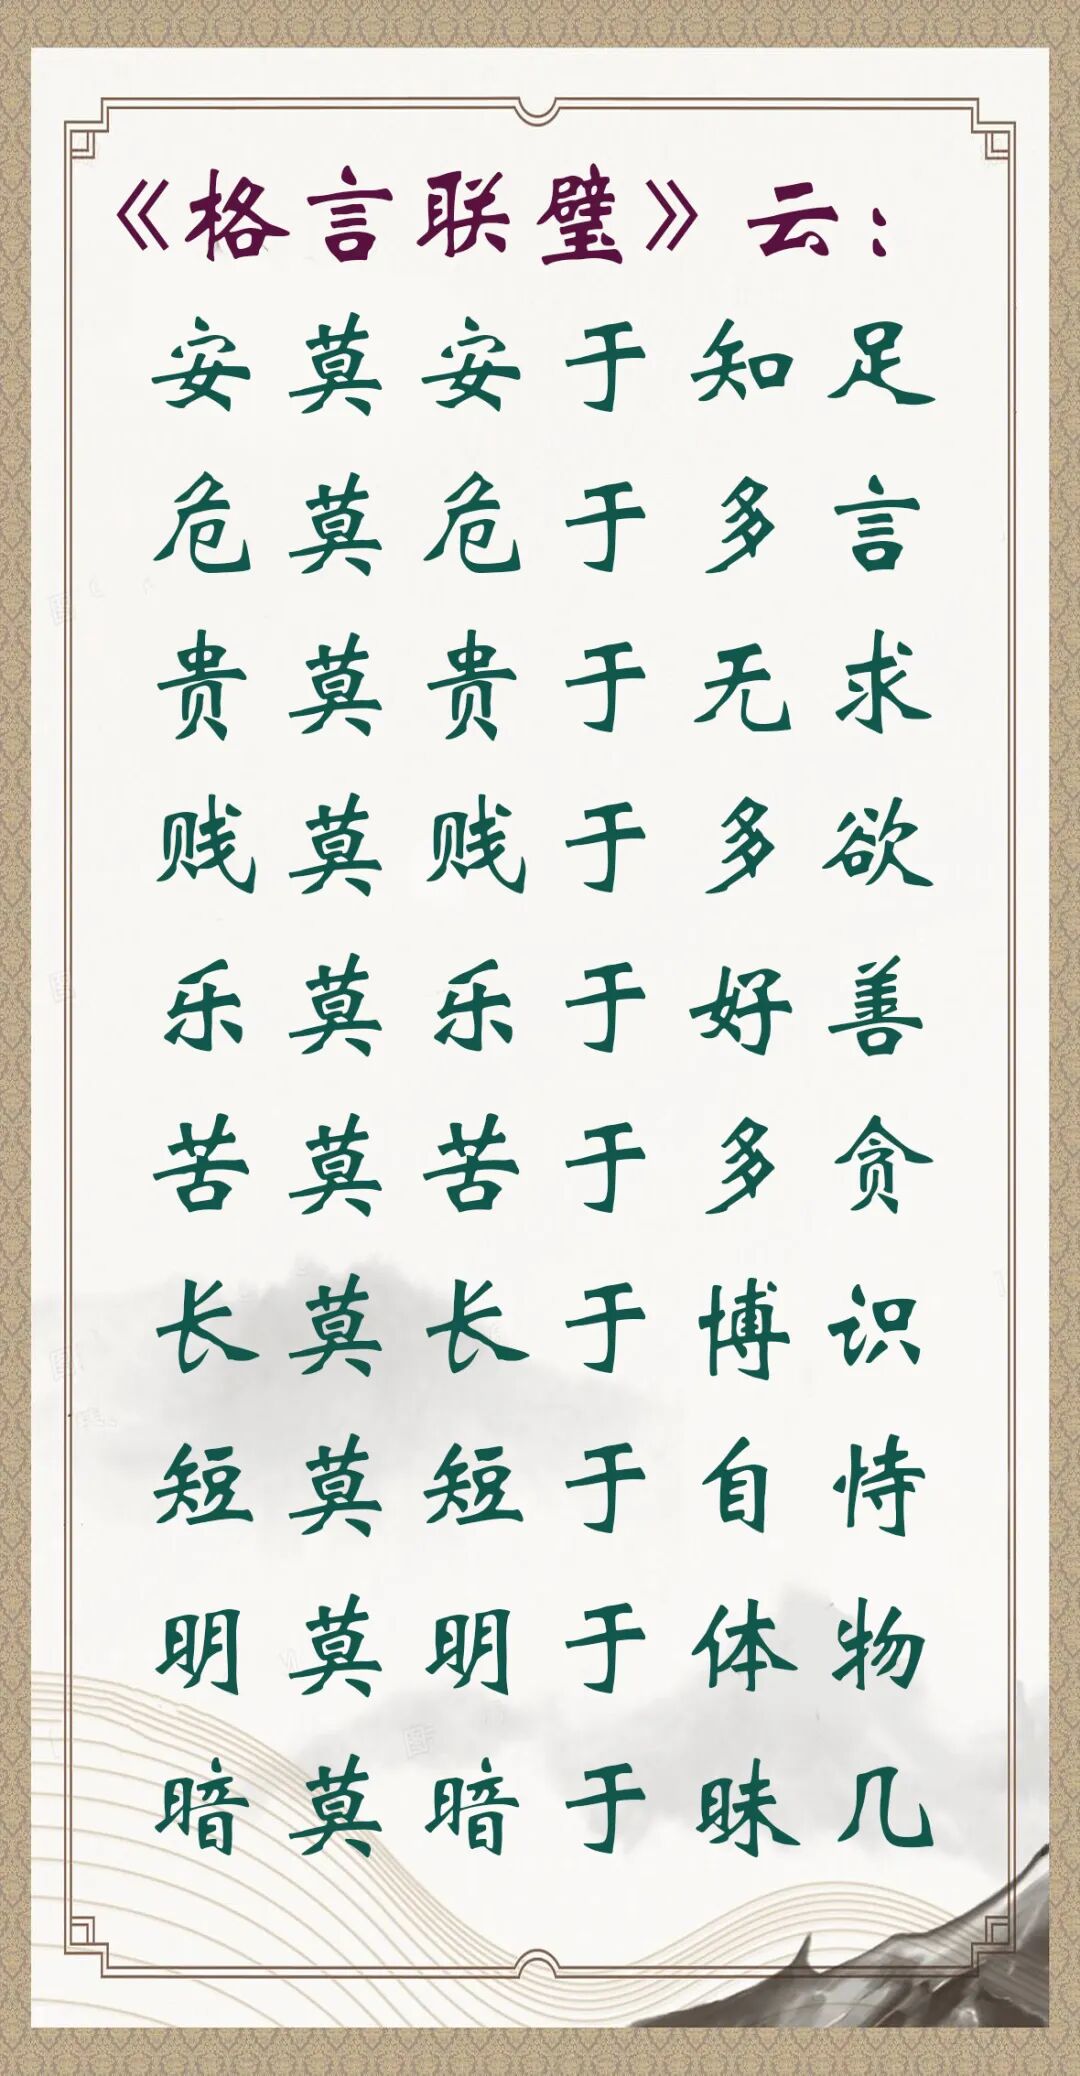 《格言联璧》云：
安莫安于知足
危莫危于多言
贵莫贵于无求
贱莫贱于多欲
乐莫乐于好善
苦莫苦于多贪
长莫长于博识
短莫短于自恃
明莫明于体物
暗莫暗于昧几